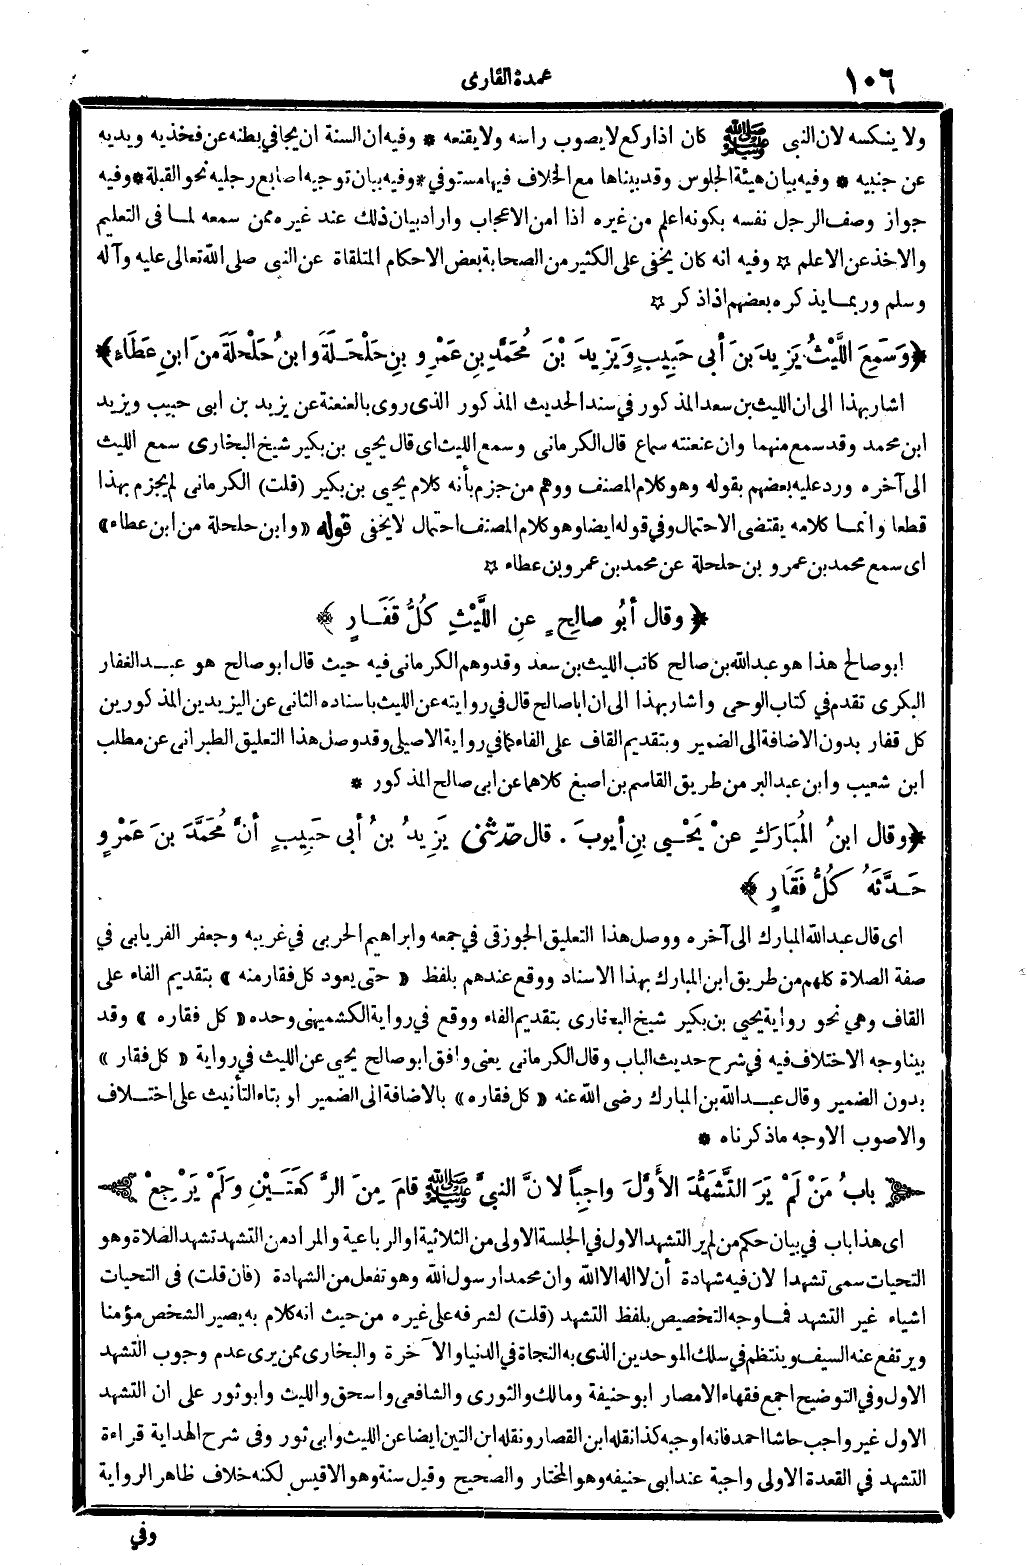 ١٠٦
عمدة القارى
ولا ينكسه لان النبى ﷺ كان اذا ركع لا يصوب راسه ولا يقنعه * وفيه ان السنة ان يجافي بطنه عن فخذيه ويديه
عن جنبيه * وفيه بيان هيئة الجلوس وقد بيناها مع الخلاف فيها مستوفى * وفيه بيان توجيه اصابع رجليه نحو القبلة * وفيه
جواز وصف الرجل نفسه بكونه اعلم من غيره اذا امن الاعجاب واراد بيان ذلك عند غيره ممن سمعه لما فى التعليم
والاخذ عن الاعلم ☆ وفيه انه كان يخفى على الكثير من الصحابة بعض الاحكام المتلقاة عن النبى صلى الله تعالى عليه وآله
وسلم وربما يذكره بعضهم اذا ذكر ☆
﴿وَسَمِعَ اللَّيْثُ يَزِيدَ بنَ أبى حَبِيبٍ وَيَزِيدَ بْنَ مُحَمَّدِ بنِ عَمْرِو بنِ حَلْحَلَةَ وابنُ حَلْحَلَةَ مِن ابنِ عَطَاءٍ﴾
اشار بهذا الى ان الليث بن سعد المذكور في سند الحديث المذكور الذى روى بالعنعنة عن يزيد بن ابى حبيب ويزيد
ابن محمد وقد سمع منهما وان عنعنته سماع قال الكرمانى وسمع الليث اى قال يحيى بن بكير شيخ البخارى سمع الليث
الى آخره ورد عليه بعضهم بقوله وهو كلام المصنف ووهم من جزم بأنه كلام يحيى بن بكير (قلت) الكرمانى لم يجزم بهذا
قطعا وانما كلامه يقتضى الاحتمال وفي قوله ايضا وهو كلام المصنف احتمال لا يخفى قوله «وابن حلحلة من ابن عطاء»
اى سمع محمد بن عمرو بن حلحلة عن محمد بن عمرو بن عطاء ☆
﴿وقال أبُو صالِحٍ عنِ اللَّيْثِ كُلُّ قَفَارٍ﴾
ابو صالح هذا هو عبدالله بن صالح كاتب الليث بن سعد وقد وهم الكرمانى فيه حيث قال ابو صالح هو عبد الغفار
البكرى تقدم في كتاب الوحى واشار بهذا الى ان ابا صالح قال في روايته عن الليث باسناده الثانى عن اليزيدين المذكورين
كل قفار بدون الاضافة الى الضمير وبتقديم القاف على الفاء كما في رواية الاصيلى وقد وصل هذا التعليق الطبرانى عن مطلب
ابن شعيب وابن عبد البر من طريق القاسم بن اصبغ كلاهما عن ابى صالح المذكور *
﴿وقال ابنُ المُبَارَكِ عنْ يَحْيى بنِ أيوبَ . قال حدّثنى يَزِيدُ بنُ أبى حَبِيبٍ أنَّ مُحَمَّدَ بنَ عَمْرٍو
حَدَّثَهُ كُلُّ فَقَارٍ﴾
اى قال عبدالله المبارك الى آخره ووصل هذا التعليق الجوزقى في جمعه وابراهيم الحربى في غريبه وجعفر الفريابى في
صفة الصلاة كلهم من طريق ابن المبارك بهذا الاسناد ووقع عندهم بلفظ «حتى يعود كل فقار منه» بتقديم الفاء على
القاف وهي نحو رواية يحيى بن بكير شيخ البخارى بتقديم الفاء ووقع في رواية الكشميهنى وحده «كل فقاره» وقد
بينا وجه الاختلاف فيه في شرح حديث الباب وقال الكرمانى يعنى وافق ابو صالح يحيى عن الليث في رواية «كل فقار»
بدون الضمير وقال عبد الله بن المبارك رضى الله عنه «كل فقاره» بالاضافة الى الضمير او بتاء التأنيث على اختلاف
والاصوب الاوجه ما ذكرناه *
﴿بابُ مَنْ لَمْ يَرَ التَّشَهُّدَ الأَوَّلَ واجِباً لانَّ النبيَّ ﷺ قامَ مِنَ الرَّكْعَتَيْنِ ولَمْ يَرْجِعْ﴾
اى هذا باب في بيان حكم من لم ير التشهد الاول في الجلسة الاولى من الثلاثية او الرباعية والمراد من التشهد تشهد الصلاة وهو
التحيات سمى تشهدا لان فيه شهادة أن لا اله الا الله وان محمدا رسول الله وهو تفعل من الشهادة (فان قلت) فى التحيات
اشياء غير التشهد فما وجه التخصيص بلفظ التشهد (قلت) لشرفه على غيره من حيث انه كلام به يصير الشخص مؤمنا
ويرتفع عنه السيف وينتظم في سلك الموحدين الذى به النجاة في الدنيا والآخرة والبخارى ممن يرى عدم وجوب التشهد
الاول وفي التوضيح اجمع فقهاء الامصار ابو حنيفة ومالك والثورى والشافعى واسحق والليث وابو ثور على ان التشهد
الاول غير واجب حاشا احمد فانه اوجبه كذا نقله ابن القصار ونقله ابن التين ايضا عن الليث وابى ثور وفى شرح الهداية قراءة
التشهد في القعدة الاولى واجبة عند ابى حنيفة وهو المختار والصحيح وقيل سنة وهو الاقيس لكنه خلاف ظاهر الرواية
وفي